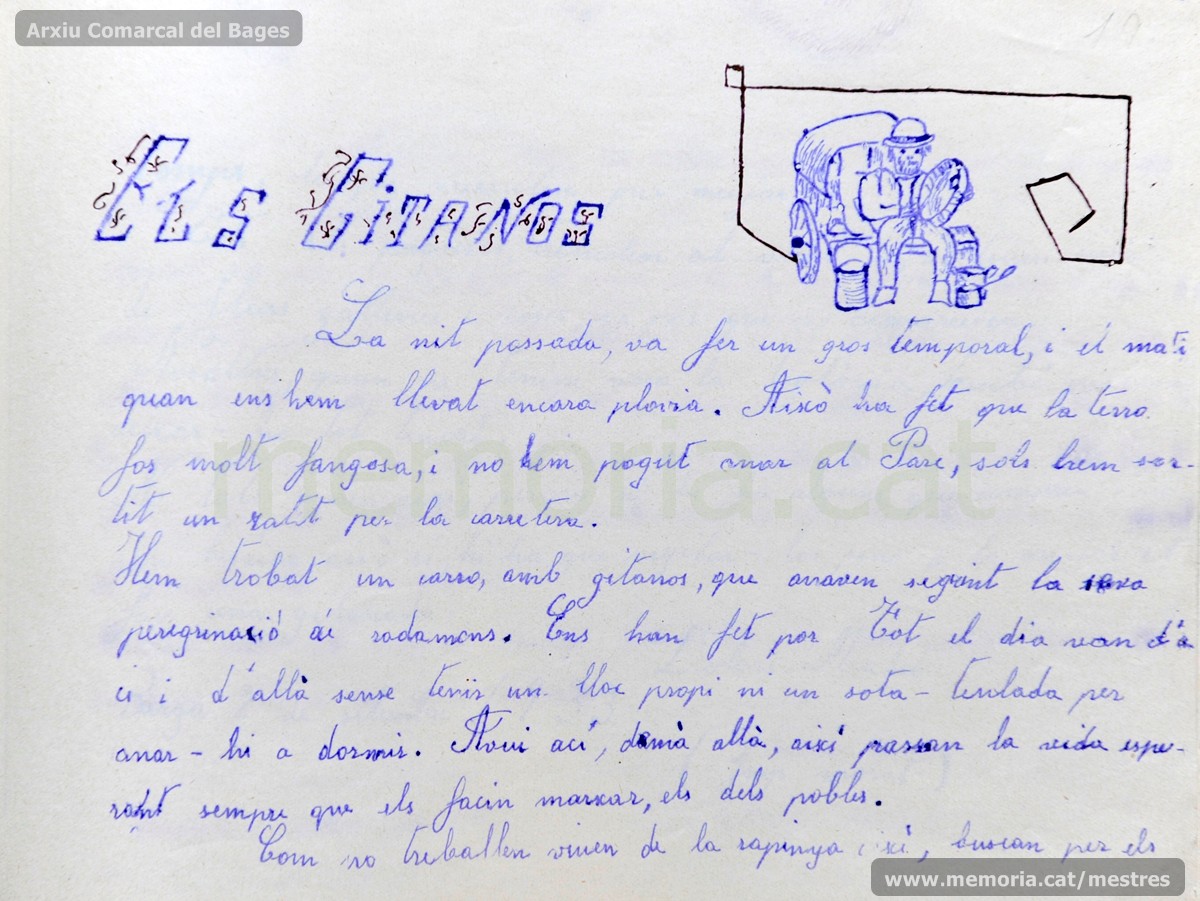 Arxiu Comarcal del Bages
Els Gitanos
La nit passada, va fer un gros temporal, i el mati
quan ens hem llevat encara plovia. Això ha fet que la terra
fos molt fangosa, i no hem pogut anar al Parc, sols hem sor-
tit un ratit per la carretera.
Hem trobat un carro, amb gitanos, que anaven seguint la seva
peregrinació de rodamons. Ens han fet por Tot el dia van d'a
ci i d'allà sense tenir un lloc propi ni un sota-teulada per
anar-hi a dormir. Avui ací, demà allà, aixi passan la vida espe-
rant sempre que els facin marxar, els dels pobles.
Com no treballen viuen de la rapinya , buscan per els
memoria.cat
www.memoria.cat/mestres